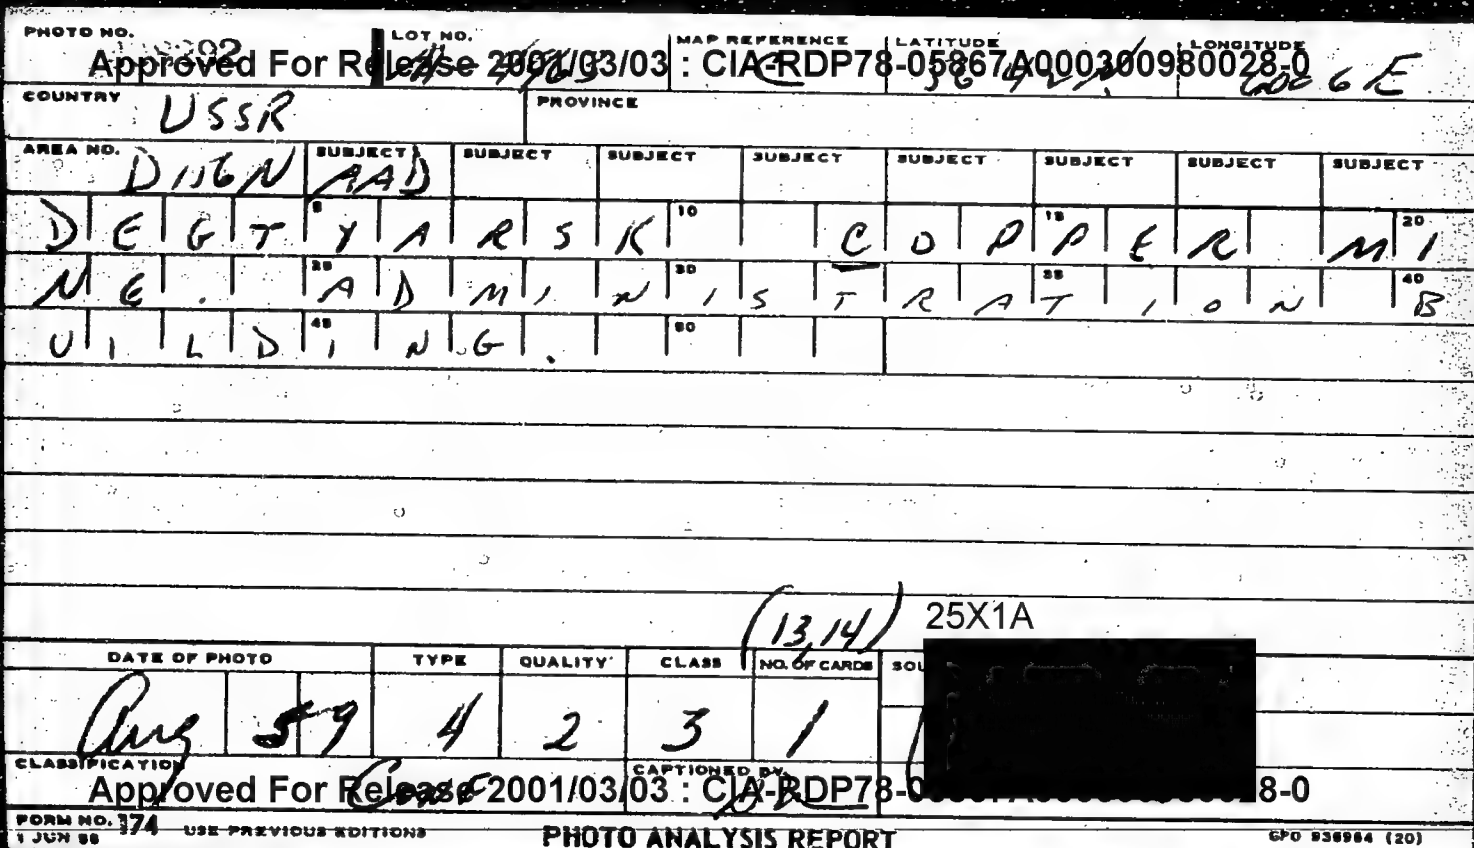 PHOTO NO. LOT NO. MAP REFERENCE LATITUDE LONGITUDE
Approved For Release 2001/03/03 : CIA-RDP78-05867A000300980028-0
COUNTRY USSR PROVINCE
AREA NO. SUBJECT SUBJECT SUBJECT SUBJECT SUBJECT SUBJECT SUBJECT SUBJECT
AAD
DEGTYARSK COPPER MI
NE. ADMINISTRATION B
UILDING.
(13,14) 25X1A
DATE OF PHOTO TYPE QUALITY CLASS NO. OF CARDS
Aug 59 4 2 3 1
CLASSIFICATION CAPTIONED BY
Approved For Release 2001/03/03 : CIA-RDP78-0 8-0
FORM NO. 374 USE PREVIOUS EDITIONS PHOTO ANALYSIS REPORT GPO 936964 (20)
1 JUN 58